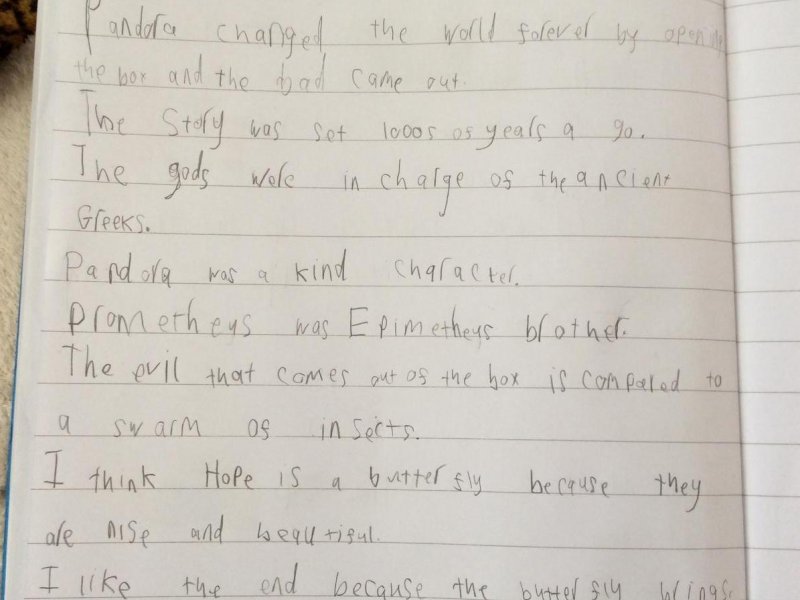 Pandora changed the world forever by opening
the box and the bad came out.
The Story was set 1000s of years a go.
The gods were in charge of the ancient
Greeks.
Pandora was a kind character.
Prometheus was Epimetheus brother.
The evil that comes out of the box is compared to
a swarm of insects.
I think Hope is a butterfly because they
are nise and beautiful.
I like the end because the butterfly brings